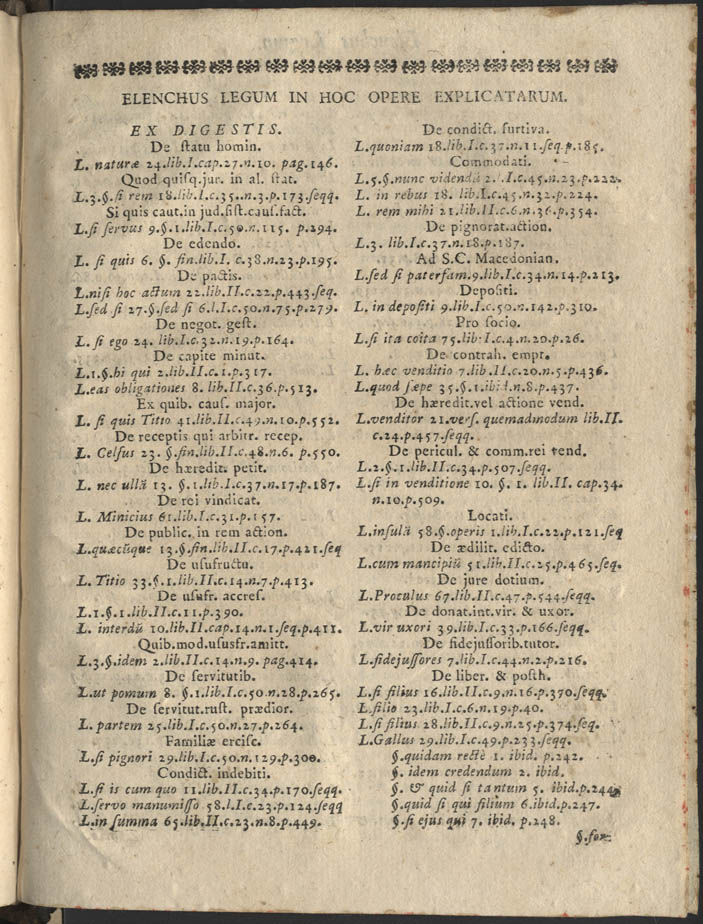 ELENCHUS LEGUM IN HOC OPERE EXPLICATARUM.
EX DIGESTIS.
De ſtatu homin.
L. naturæ 24.lib.I.cap.27.n.10. pag.146.
Quod quiſq.jur. in al. ſtat.
L.3.§.ſi rem 18.lib.I.c.35.n.3.p.173.ſeqq.
Si quis caut.in jud.ſiſt.cauſ.fact.
L.ſi ſervus 9.§.1.lib.I.c.50.n.115. p.294.
De edendo.
L. ſi quis 6. §. fin.lib.I. c.38.n.23.p.195.
De pactis.
L.niſi hoc actum 22.lib.II.c.22.p.443.ſeq.
L.ſed ſi 27.§.ſed ſi 6.l.I.c.50.n.75.p.279.
De negot. geſt.
L. ſi ego 24. lib.I.c.32.n.19.p.164.
De capite minut.
L.1.§.hi qui 2.lib.II.c.1.p.317.
L.eas obligationes 8. lib.II.c.36.p.513.
Ex quib. cauſ. major.
L. ſi quis Titio 41.lib.II.c.49.n.10.p.552.
De receptis qui arbitr. recep.
L. Celſus 23. §.fin.lib.II.c.48.n.6. p.550.
De hæredit. petit.
L. nec ullã 13. §.1.lib.I.c.37.n.17.p.187.
De rei vindicat.
L. Minicius 61.lib.I.c.31.p.157.
De public. in rem action.
L.quæcũque 13.§.fin.lib.II.c.17.p.421.ſeq
De uſufructu.
L. Titio 33.§.1.lib.II.c.14.n.7.p.413.
De uſufr. accreſ.
L.1.§.1.lib.II.c.11.p.390.
L. interdũ 10.lib.II.cap.14.n.1.ſeq.p.411.
Quib.mod.uſusfr.amitt.
L.3.§.idem 2.lib.II.c.14.n.9. pag.414.
De ſervitutib.
L.ut pomum 8. §.1.lib.I.c.50.n.28.p.265.
De ſervitut.ruſt. prædior.
L. partem 25.lib.I.c.50.n.27.p.264.
Familiæ erciſc.
L.ſi pignori 29.lib.I.c.50.n.129.p.300.
Condict. indebiti.
L.ſi is cum quo 11.lib.I.c.34.p.170.ſeqq.
L.ſervo manumiſſo 58.l.I.c.23.p.124.ſeqq
L.in ſumma 65.lib.II.c.23.n.8.p.449.
De condict. furtiva.
L.quoniam 18.lib.I.c.37.n.11.ſeq.p.185.
Commodati.
L.5.§.nunc videndũ lib.I.c.45.n.23.p.222.
L. in rebus 18. lib.I.c.45.n.32.p.224.
L. rem mihi 21.lib.II.c.6.n.36.p.354.
De pignorat.action.
L.3. lib.I.c.37.n.18.p.187.
Ad S.C. Macedonian.
L.ſed ſi paterfam.9.lib.I.c.34.n.14.p.213.
Depoſiti.
L. in depoſiti 9.lib.I.c.50.n.142.p.310.
Pro ſocio.
L.ſi ita coita 75.lib.I.c.4.n.20.p.26.
De contrah. empt.
L. hæc venditio 7.lib.II.c.20.n.5.p.436.
L.quod ſæpe 35.§.1.ibid.n.8.p.437.
De hæredit.vel actione vend.
L.venditor 21.verſ. quemadmodum lib.II.
c.24.p.457.ſeqq.
De pericul. & comm.rei vend.
L.2.§.1.lib.II.c.34.p.507.ſeqq.
L.ſi in venditione 10. §. 1. lib.II. cap.34.
n.10.p.509.
Locati.
L.inſulã 58.§.operis 1.lib.I.c.22.p.121.ſeq
De ædilit. edicto.
L.cum mancipiũ 51.lib.II.c.25.p.465.ſeq.
De jure dotium.
L.Proculus 67.lib.II.c.47.p.544.ſeqq.
De donat.int.vir. & uxor.
L.vir uxori 39.lib.I.c.33.p.166.ſeqq.
De fidejuſſorib.tutor.
L.fidejuſſores 7.lib.I.c.44.n.2.p.216.
De liber. & poſth.
L.ſi filius 16.lib.II.c.9.n.16.p.370.ſeqq.
L.filio 23.lib.I.c.6.n.19.p.40.
L.ſi filius 28.lib.II.c.9.n.25.p.374.ſeq.
L.Gallus 29.lib.I.c.49.p.233.ſeqq.
§.quidam rectè 1. ibid. p.242.
§. idem credendum 2. ibid.
§. & quid ſi tantum 5. ibid.p.244.
§.quid ſi qui filium 6.ibid.p.247.
§.ſi ejus qui 7. ibid. p.248.